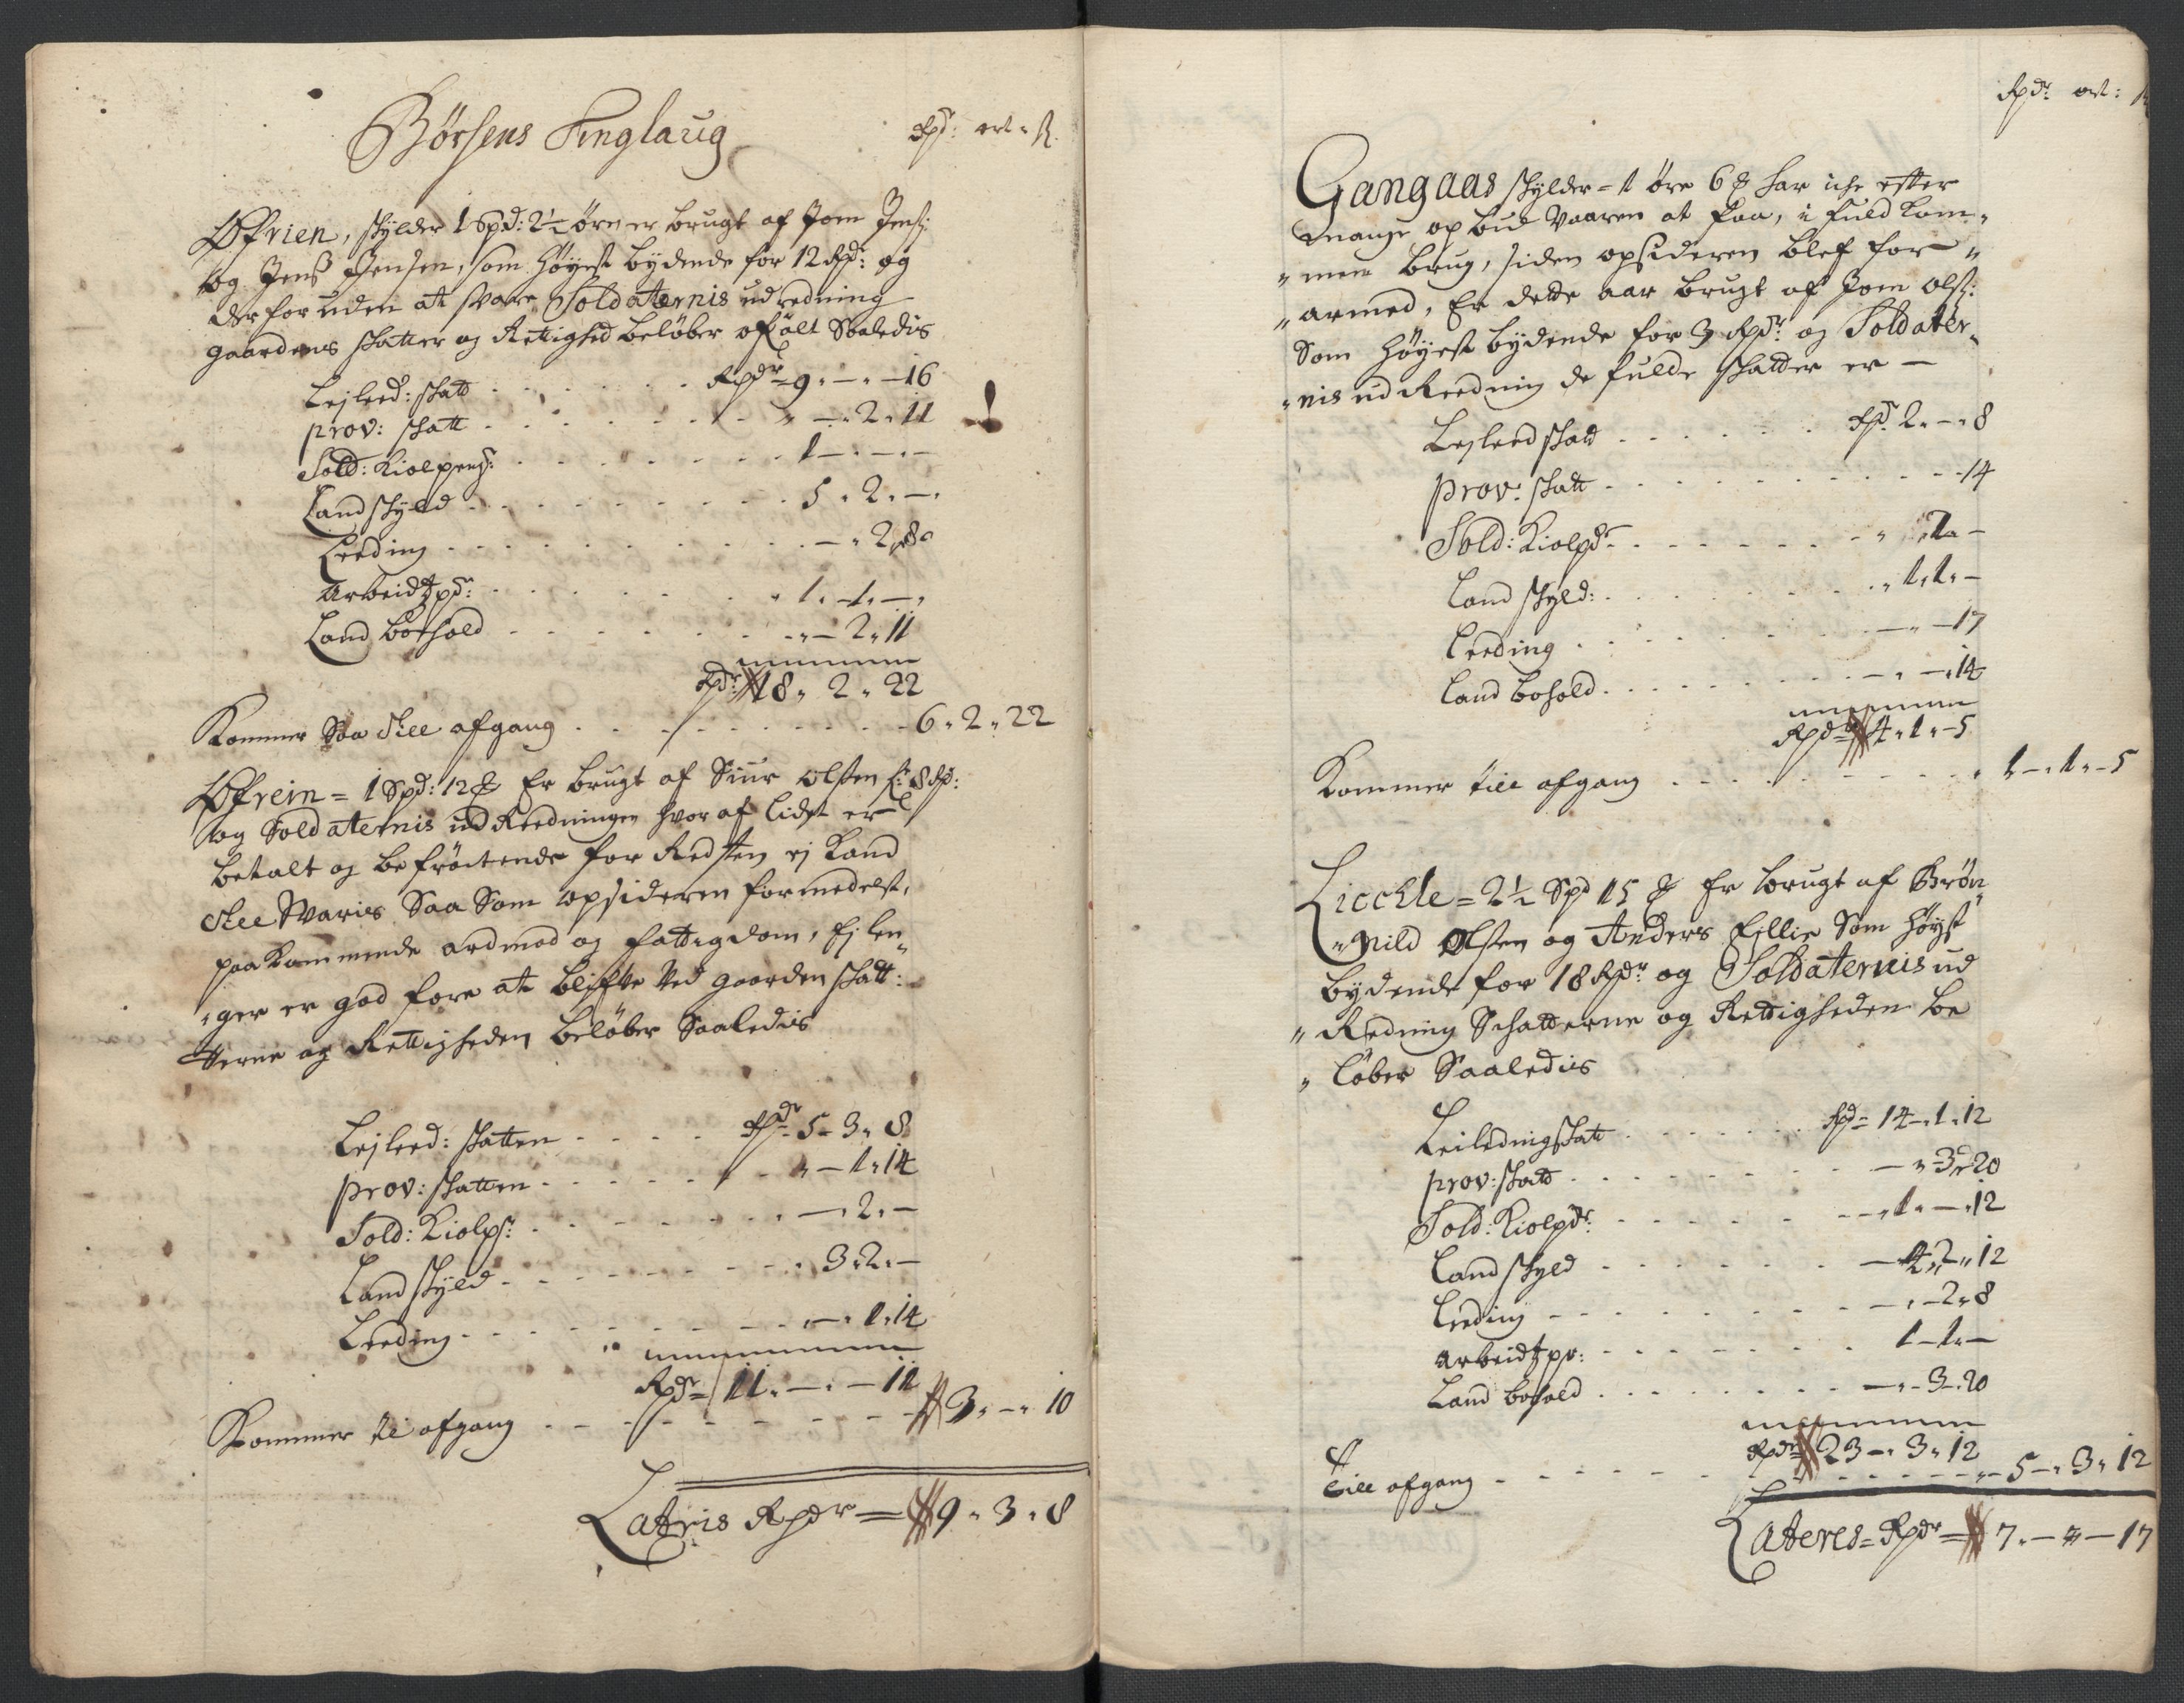 Børsens Tinglaug
Rpd: ort: ß
Øfrien, skylder 1 Spd: 2½ ørn er brugt af Joen Jens:
og Jenß Jensen, som høyest bydende for 12 Rpd: og
der foruden at svare Soldaternis udredning
gaardens skatter og Rettighed beløber ofℓalt Saaledis
Lejled: skatt Rpdr 9 " — " — 16
prov: skatt " — " 2 " 11
Sold: Kiolpeng: 1 — " — " —
Landskyld 5 " 2 " —
Leeding — " 2 " 8
Arbeidtzpd: " 1 " — 1 " — "
Land bohold " — 2 " 11
Rpdr 18 " 2 " 22
Kommer Saa till afgang 6 " 2 " 22
Øfrein = 1 Spd: 12 ℔ Er brugt af Siur Olsen f: 8 Rpd:
og Soldaternis ud Reedningen hvoraf lidet er
betalt og befrøctende for Resten ej kand
till Svaris Saa Som opsideren formedelst,
paakommende armod og fattigdom, Ej len"
"ger er god fore at blifve ved gaarden skatt:
terne og Rettigheden beløber Saaledis
Lejled: skatten Rpdr 5 - 3 " 8
prov: skatten " — 1 " 14
Sold: Kiolps: — " 2 " —
Landskyld 3 " 2 " —
Leeding " — " 1 " 14
Rpdr = 11 " — " — 12
Kommer til afgang 3 " — " 10
Lateris Rpdr = 9 " 3 " 8
Rpdr: ort: ß
Gangaas skylder = 1 øre 6 ℔ har iche efter
mange opbud vaaren at faa, i fuldkom"
"men brug, siden opsideren blef for "
"armed, Er dette aar brugt af Joen Ols:
Som høyest bydende for 3 Rpdr og Soldater"
"nis ud Reedning de fulde skatter er —
Lejleed skatt Rpdr 2 " — " 8
prov: skatt 14
Sold: Kiolpdr " 1 " —
Land skyld: " 1 " 1 " —
Leeding — " — 17
Land bohold — " — " 14
Rpdr 4 " 1 " — 5
Kommer till afgang 1 — " 1 " — 5
Licchle = 2½ Spd 15 ℔ Er brugt af Brøn
"nild Olsen og Anders Eillie Som høyst
bydende for 18 Rpdr og Soldaternis ud
"Reedning Schatterne og Rettigheden be
"løber Saaledis
Leiledingskatt Rpd = 14 — " 1 " 12
prov: skatt — " 3 " 20
Sold: Kiolpdr: — " 1 " — " 12
Landskyld — 4 " 2 " 12
Leeding — " — 2 " 8
Arbeidtzpr: 1 — 1 " —
Land bohold — " — 3 " 20
Rpdr 23 — " 3 " 12
Till afgang — 5 — " 3 " 12
Lateres = Rpdr = 7 " — " — 17